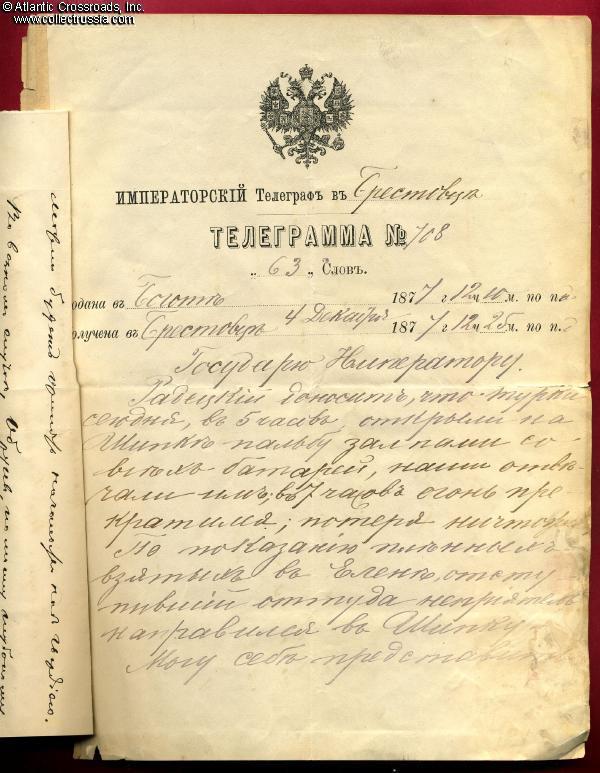 © Atlantic Crossroads, Inc.
www.collectrussia.com
ИМПЕРАТОРСКІЙ Телеграфъ въ Брестовцѣ
ТЕЛЕГРАММА № 708
„ 63 „ Словъ.
одана въ Боготъ 1877 г 12 ч 10 м. по по
олучена въ Брестовцѣ 4 Декабря 1877 г 12 ч 25 м. по п.
Государю Императору.
Радецкій доноситъ, что турки
сегодня, въ 5 часовъ, открыли на
Шипкѣ пальбу залпами со
всѣхъ батарей, наши отвѣ-
чали имъ; въ 7 часовъ огонь пре-
кратился; потеря ничтожна
По показанію плѣнныхъ
взятыхъ въ Еленѣ, отсту
пившій оттуда непріятель
направился въ Шипку
Могу себѣ представить
будетъ